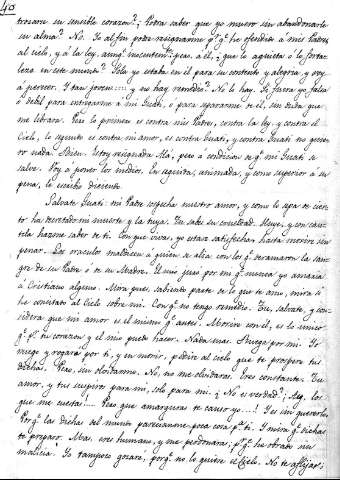 40
trozara su sensible corazon? ¿Podra saber que yo muero sin abandonarle
su alma? No. Yo al fin podre resignarme pr. qe. he ofendido a mis Padres
al cielo, y a la ley, aunqe. inocente pero a él, ¿que le aquieta o lo forta-
lesera en este
Yo la estaba en el para su contento y alegria y voy
a perecer. ¡Y tan joven....! y no hay remedio? No lo hay. Yo fuera yo falsa
o debil para entregarme a mi Guati, o para separarme de él, sin duda que
me librara. Pero lo primero es contra mis Padres, contra la ley y contra el
Cielo, lo segundo es contra mi amor, es contra Guati, y contra Guati no quie-
ro nada. Bien. Estoy resignada Alá, pero á condicion de qe. mi Guati se
salve. Voy a poner los medios, la segunda, animada, y como superior á su
pena, le escribe diciente
Salvate Guati: mi Padre sospecha nuestro amor, y como lo sepa de cier-
to ha decretado mi muerte y la tuya. Tu sabes su crueldad. Huye, y con cau-
tela hazme saber de ti. Con que vivas, yo estare satisfecha hasta morirme sin
penar. Los oraculos maldicen á quien se alia con los qe. derramaron la san-
gre de su Padre o de su Madre. El mio juró por mi qe. nunca yo amaria
á Cristiano alguno. Mira pues, sabiente parte de lo que te amo, mira si
he concitado al Cielo sobre mi. Con qe. no tengo remedio. Tu, salvate, y con-
sidera que mi amor es el mismo qe. antes. Morire con el, es lo unico
qe. pr. tu corazon y el mio puedo hacer. Nada mas. Ruega por mi. Yo
ruego y rogaré por ti, y en morir, pediré al cielo que te prospere tus
dichas. Pero, sin olvidarme. No, no me olvidaras. Eres constante. Tu
amor, y tus suspiros para mi, solo para mi. ¿No es verdad? ¡Ay, los
que me cuestas!... Pero que amarguras te causo yo...! Y es sin quererlo.
Porqe. las dichas del mundo parecianme poca cosa pa. ti. Y mira qe. dichas
te preparo. Mas, eres humano, y me perdonarás, pr. qe. he obrado sin
malicia! Yo tampoco gozaré, porqe. no lo quiere el Cielo. No te aflijas;